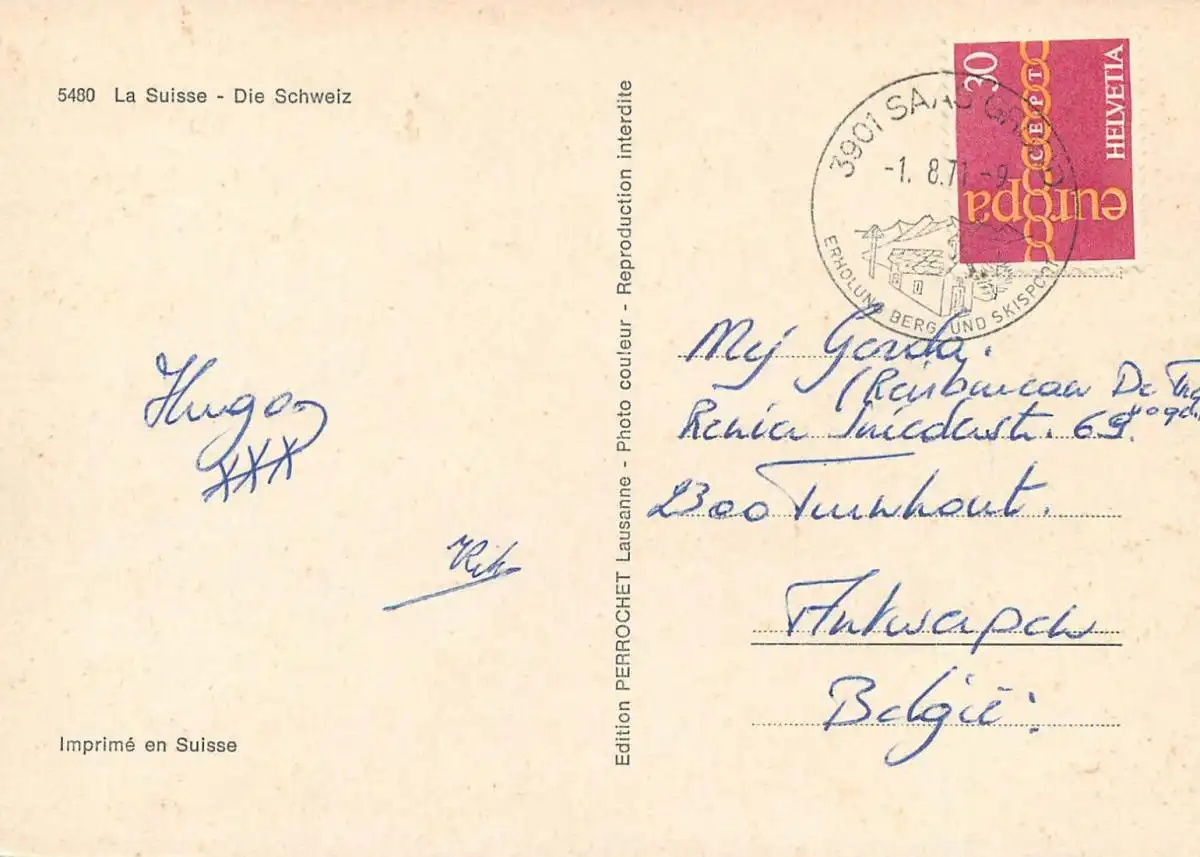 5480 La Suisse - Die Schweiz
Hugo
XXX
Imprimé en Suisse
Edition PERROCHET Lausanne - Photo couleur - Reproduction interdite
3901 SAAS GRUND
-1. 8.71 -9
ERHOLUNG BERG UND SKISPORT
30
CEPT
HELVETIA
europa
Mej Gerda.
(Reisbureau De
Renier Sniederstr. 69.
2300 Turnhout.
Antwerpen
België